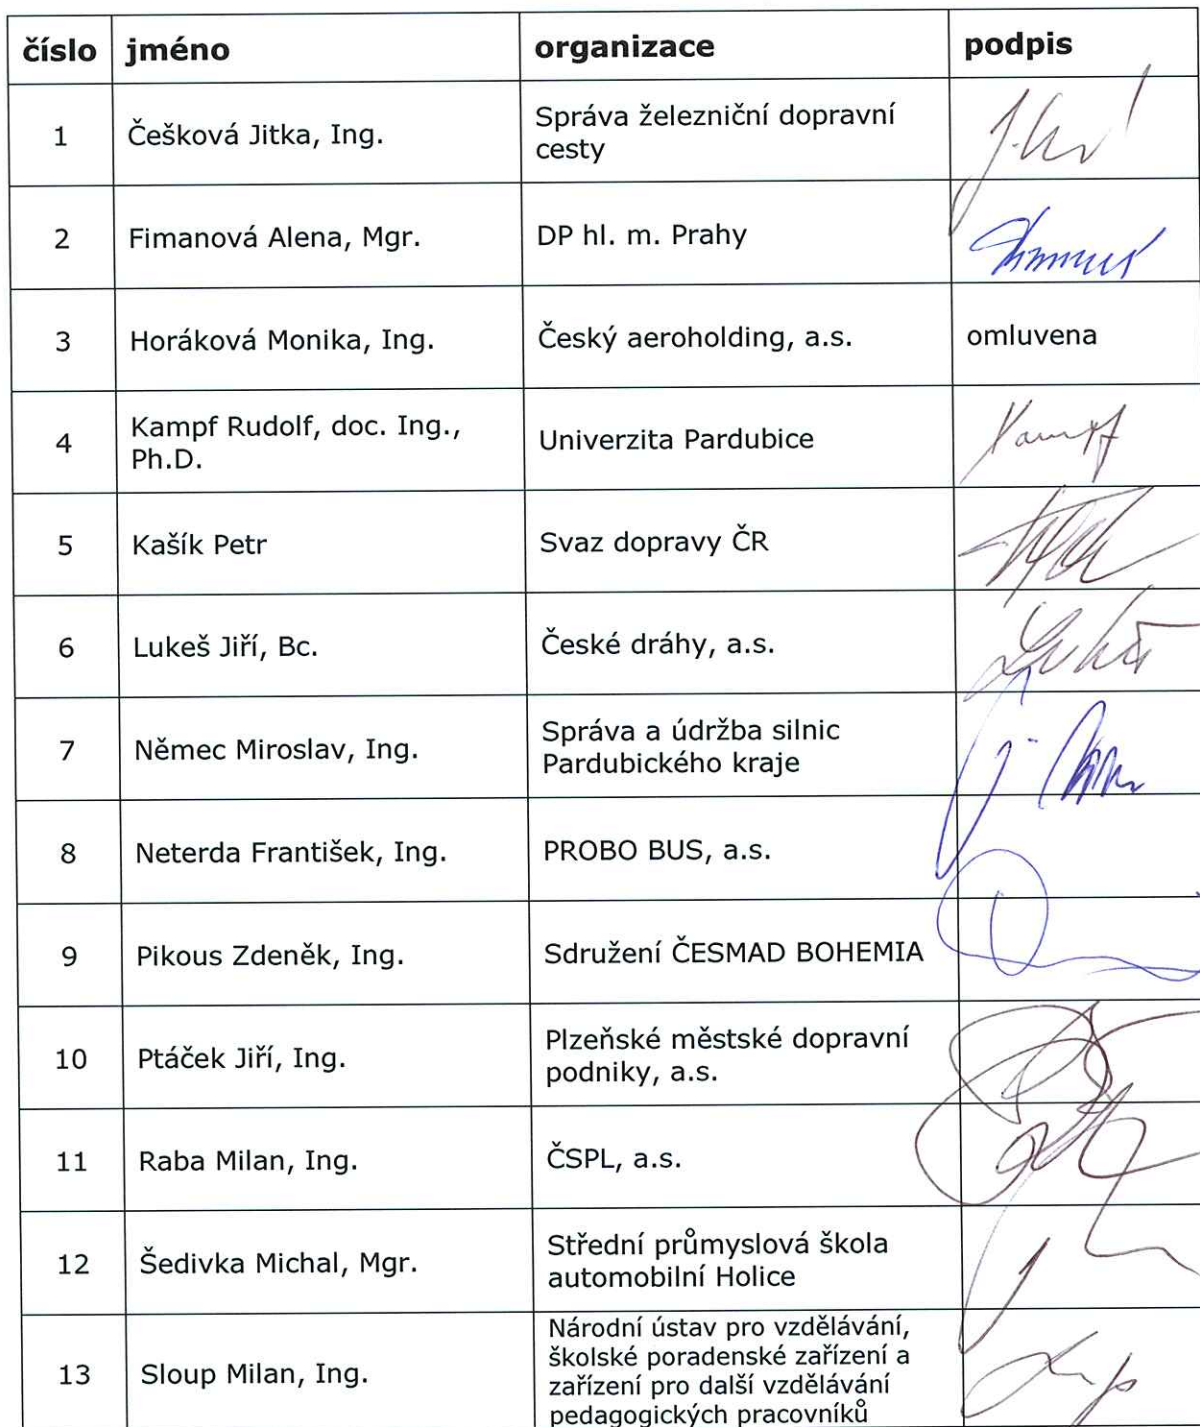 číslo jméno organizace podpis
1 Češková Jitka, Ing. Správa železniční dopravní
cesty
2 Fimanová Alena, Mgr. DP hl. m. Prahy
3 Horáková Monika, Ing. Český aeroholding, a.s. omluvena
4 Kampf Rudolf, doc. Ing., Univerzita Pardubice Kampf
Ph.D.
5 Kašík Petr Svaz dopravy ČR
6 Lukeš Jiří, Bc. České dráhy, a.s.
7 Němec Miroslav, Ing. Správa a údržba silnic
Pardubického kraje
8 Neterda František, Ing. PROBO BUS, a.s.
9 Pikous Zdeněk, Ing. Sdružení ČESMAD BOHEMIA
10 Ptáček Jiří, Ing. Plzeňské městské dopravní
podniky, a.s.
11 Raba Milan, Ing. ČSPL, a.s.
12 Šedivka Michal, Mgr. Střední průmyslová škola
automobilní Holice
13 Sloup Milan, Ing. Národní ústav pro vzdělávání,
školské poradenské zařízení a
zařízení pro další vzdělávání
pedagogických pracovníků